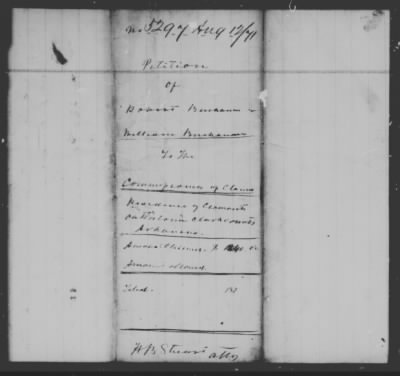 No 5297 Aug 12/71
Petition
of
Robert Buchanan &
William Buchanan
To The
Commissioners of Claims
Residence of Claimants
Clark County
Arkansas.
Amount Claimed $
Amount allowed.
Filed. 187
H B Stuart
atty